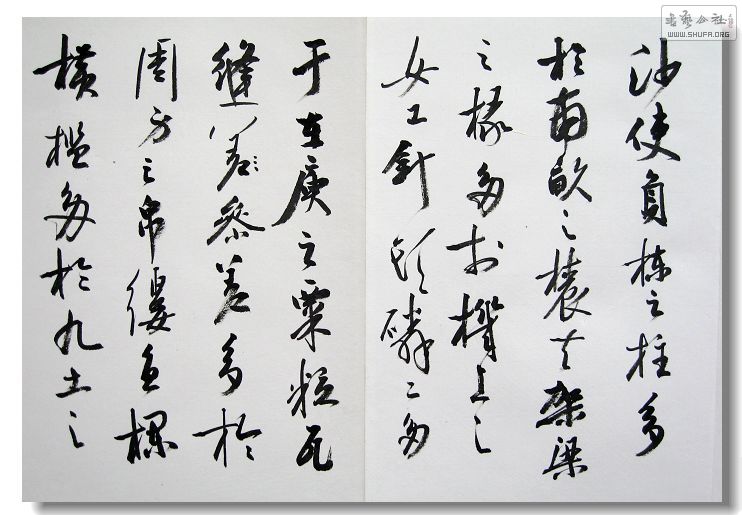 沙使負栋之柱多
於南畝之農夫架梁
之椽多於機上之
女工針頭磷々多
于在庾之粟粒瓦
縫差參差多於
周身之帛縷直欄
橫檻多於九土之
書藝公社
WWW.SHUFA.ORG